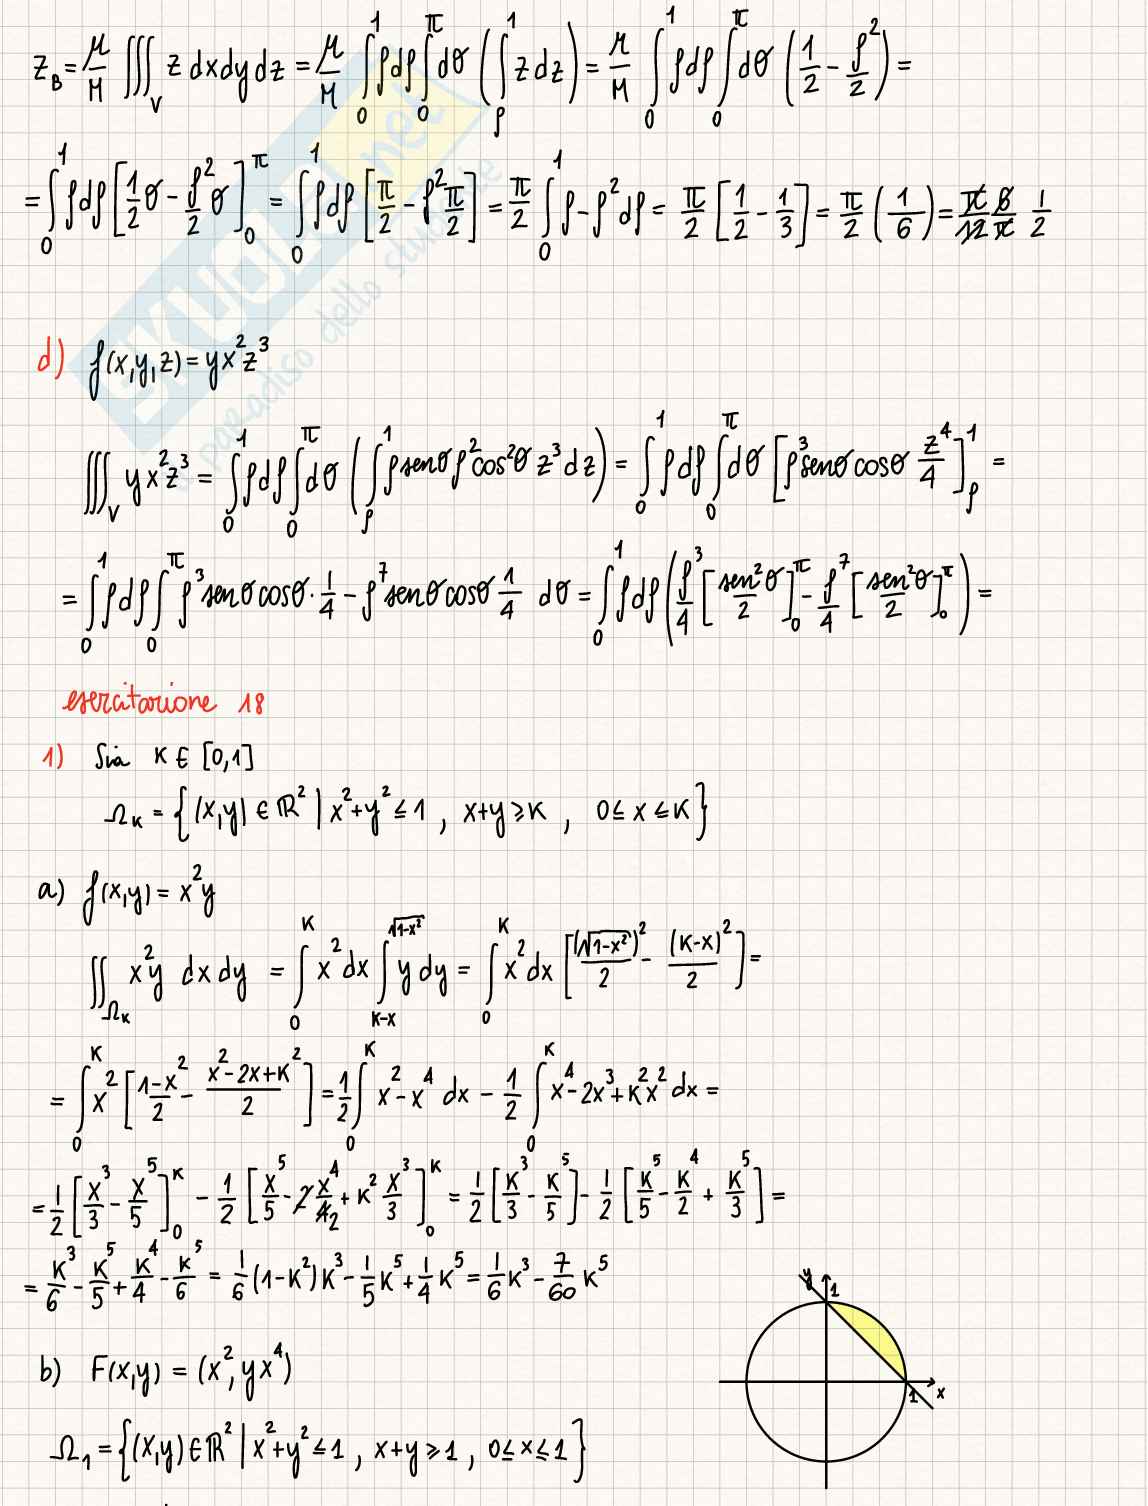 z_B = μ/M ∭_V z dxdydz = μ/M ∫_0^1 ρdρ ∫_0^π dθ (∫_ρ^1 z dz) = μ/M ∫_0^1 ρdρ ∫_0^π dθ (1/2 - ρ^2/2) =
= ∫_0^1 ρdρ [1/2 θ - ρ^2/2 θ]_0^π = ∫_0^1 ρdρ [π/2 - ρ^2 π/2] = π/2 ∫_0^1 ρ-ρ^2 dρ = π/2 [1/2 - 1/3] = π/2 (1/6) = π/12 6/π 1/2
d) f(x,y,z) = yx^2z^3
∭_V yx^2z^3 = ∫_0^1 ρdρ ∫_0^π dθ (∫_ρ^1 ρ senθ ρ^2 cos^2θ z^3 dz) = ∫_0^1 ρdρ ∫_0^π dθ [ρ^3 senθ cosθ z^4/4]_ρ^1 =
= ∫_0^1 ρdρ ∫_0^π ρ^3 senθ cosθ · 1/4 - ρ^7 senθ cosθ 1/4 dθ = ∫_0^1 ρdρ (ρ^3/4 [sen^2θ/2]_0^π - ρ^7/4 [sen^2θ/2]_0^π) =
esercitazione 18
1) Sia K ∈ [0,1]
Ω_K = {(x,y) ∈ ℝ^2 | x^2+y^2 ≤ 1 , x+y ≥ K , 0 ≤ x ≤ K}
a) f(x,y) = x^2y
∬_Ω_K x^2y dx dy = ∫_0^K x^2 dx ∫_{K-x}^{√(1-x^2)} y dy = ∫_0^K x^2 dx [(√(1-x^2))^2/2 - (K-x)^2/2] =
= ∫_0^K x^2 [(1-x^2)/2 - (x^2-2x+K^2)/2] = 1/2 ∫_0^K x^2-x^4 dx - 1/2 ∫_0^K x^4-2x^3+K^2x^2 dx =
= 1/2 [x^3/3 - x^5/5]_0^K - 1/2 [x^5/5 - 2 x^4/4 2 + K^2 x^3/3]_0^K = 1/2 [K^3/3 - K^5/5] - 1/2 [K^5/5 - K^4/2 + K^5/3] =
= K^3/6 - K^5/5 + K^4/4 - K^5/6 = 1/6 (1-K^2)K^3 - 1/5 K^5 + 1/4 K^5 = 1/6 K^3 - 7/60 K^5
y 1
1 x
b) F(x,y) = (x^2, yx^4)
Ω_1 = {(x,y) ∈ ℝ^2 | x^2+y^2 ≤ 1 , x+y ≥ 1 , 0 ≤ x ≤ 1}
SKUOLA.net
il paradiso dello studente